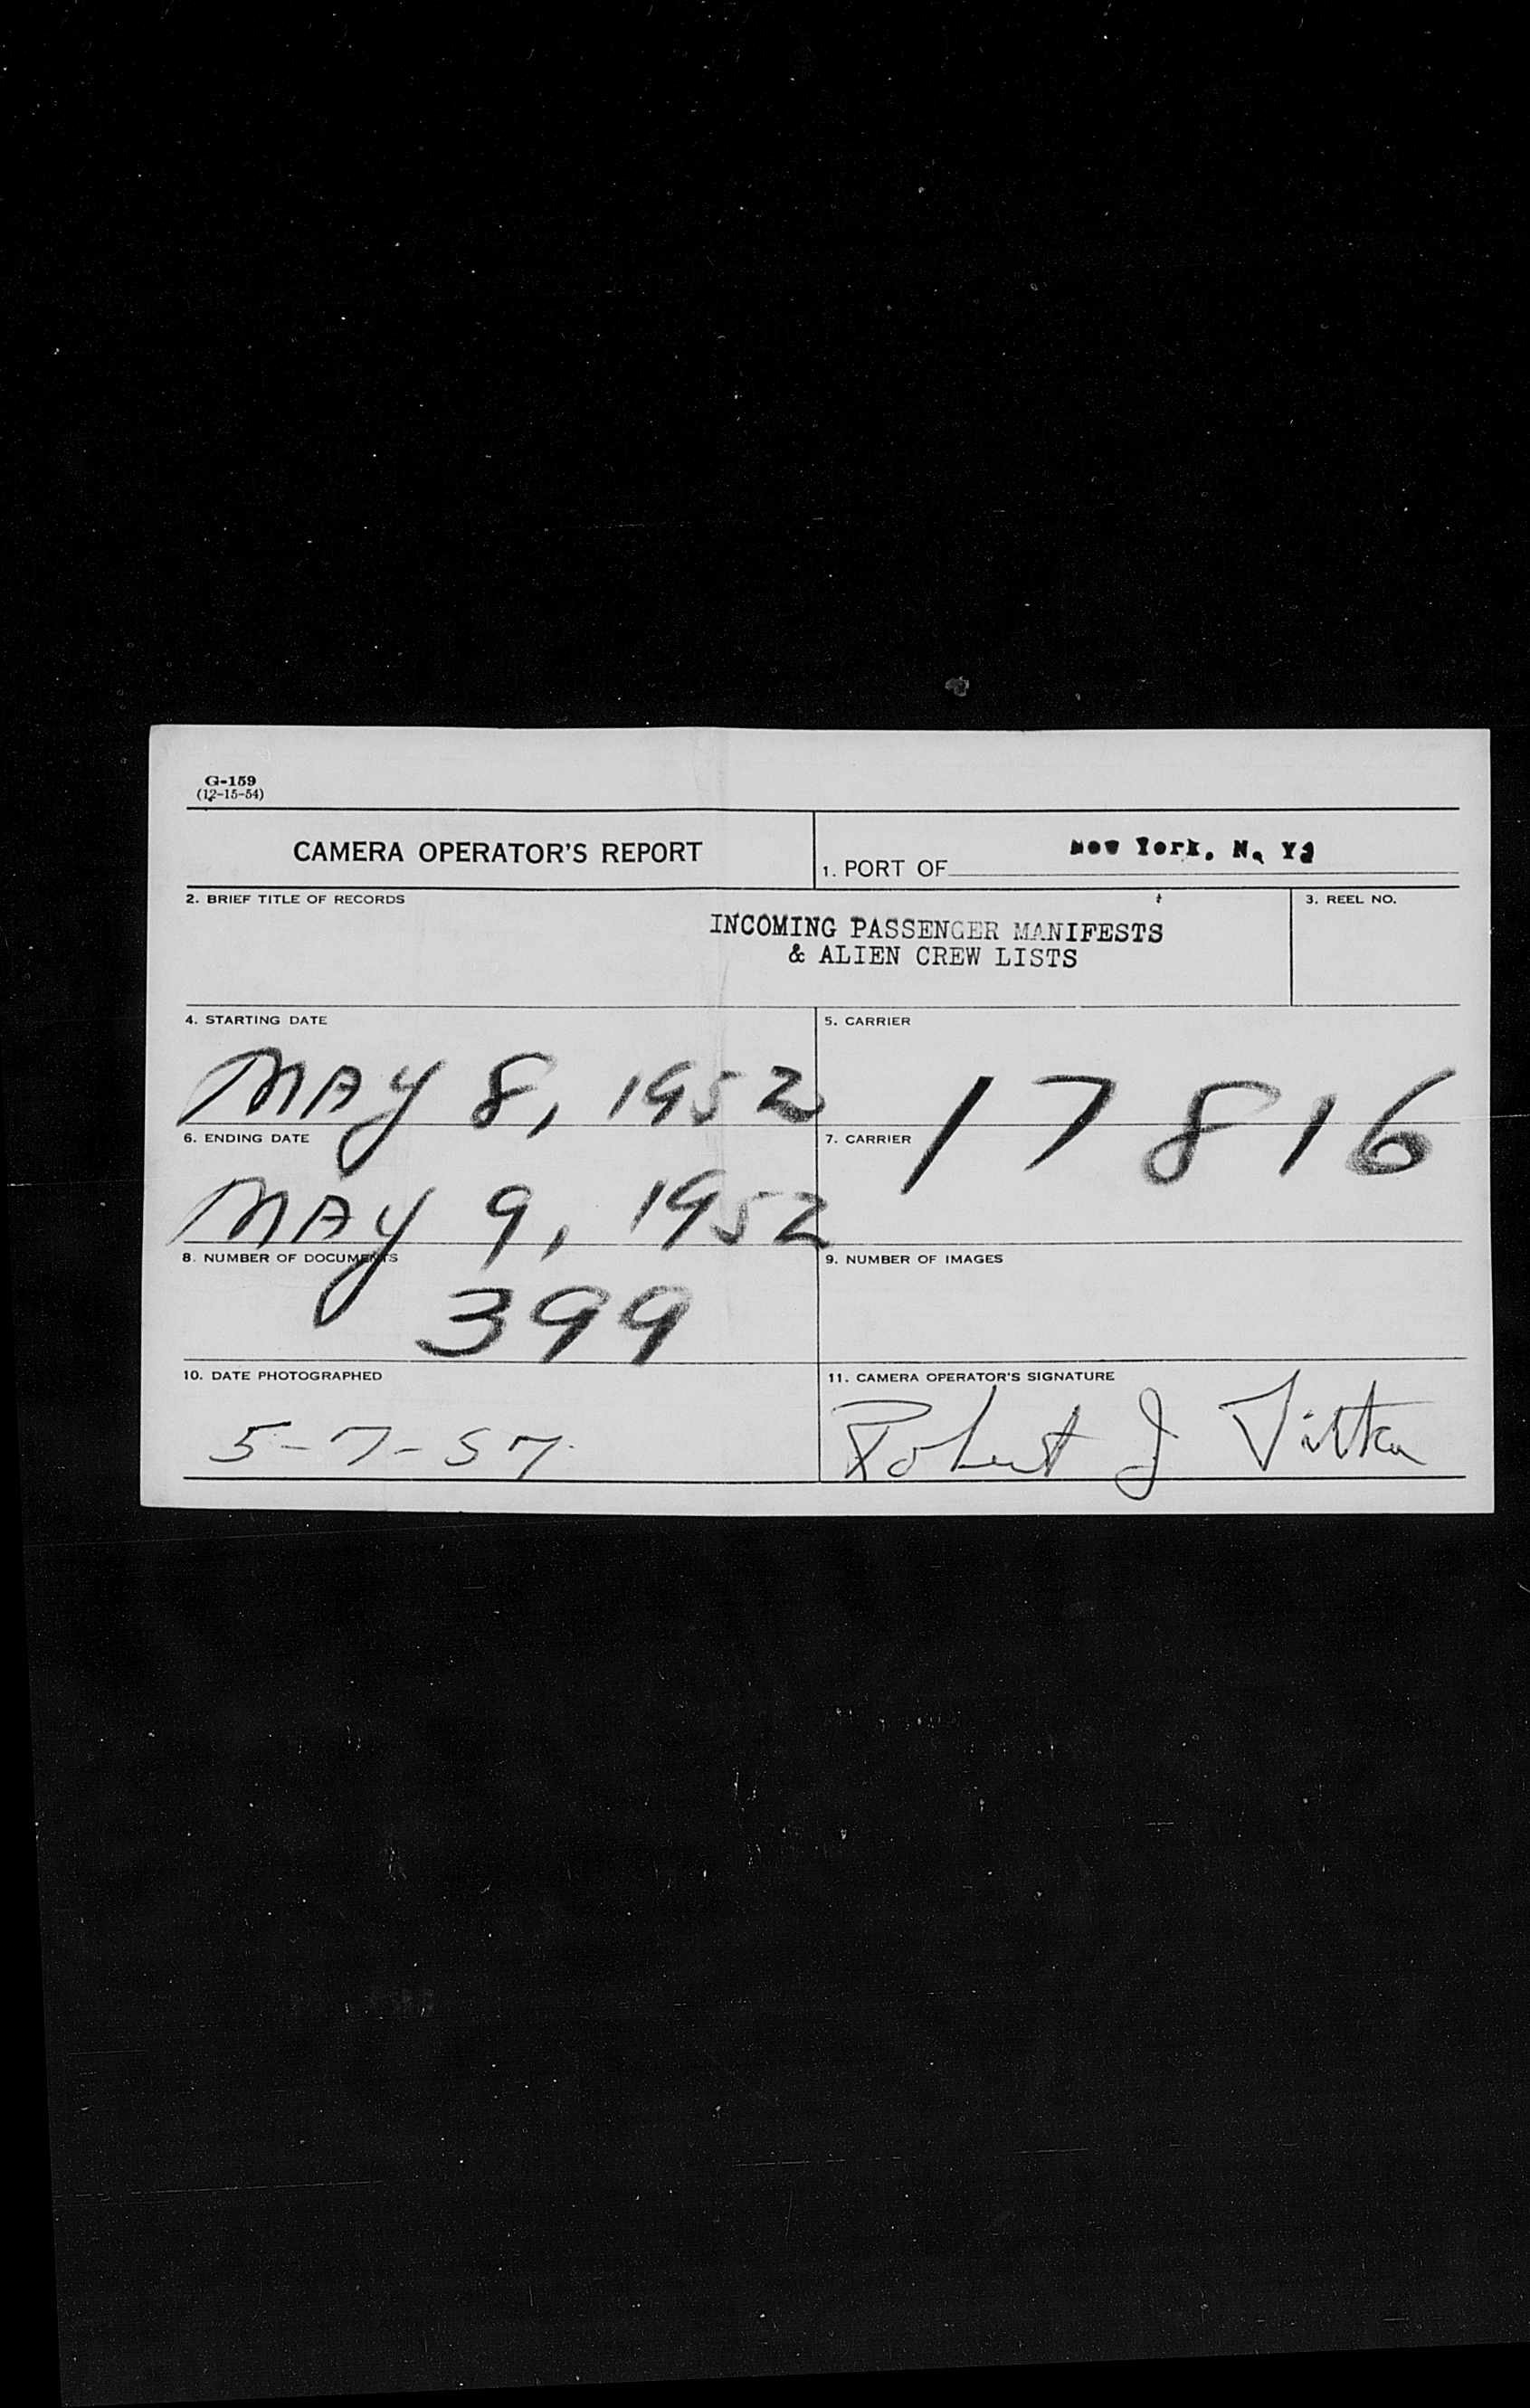 G-159
(12-15-54)
CAMERA OPERATOR'S REPORT
1. PORT OF New York, N. Y.
2. BRIEF TITLE OF RECORDS
INCOMING PASSENGER MANIFESTS
& ALIEN CREW LISTS
3. REEL NO.
4. STARTING DATE
MAY 8, 1952
5. CARRIER
17816
6. ENDING DATE
MAY 9, 1952
7. CARRIER
8. NUMBER OF DOCUMENTS
399
9. NUMBER OF IMAGES
10. DATE PHOTOGRAPHED
5-7-57
11. CAMERA OPERATOR'S SIGNATURE
Robert J